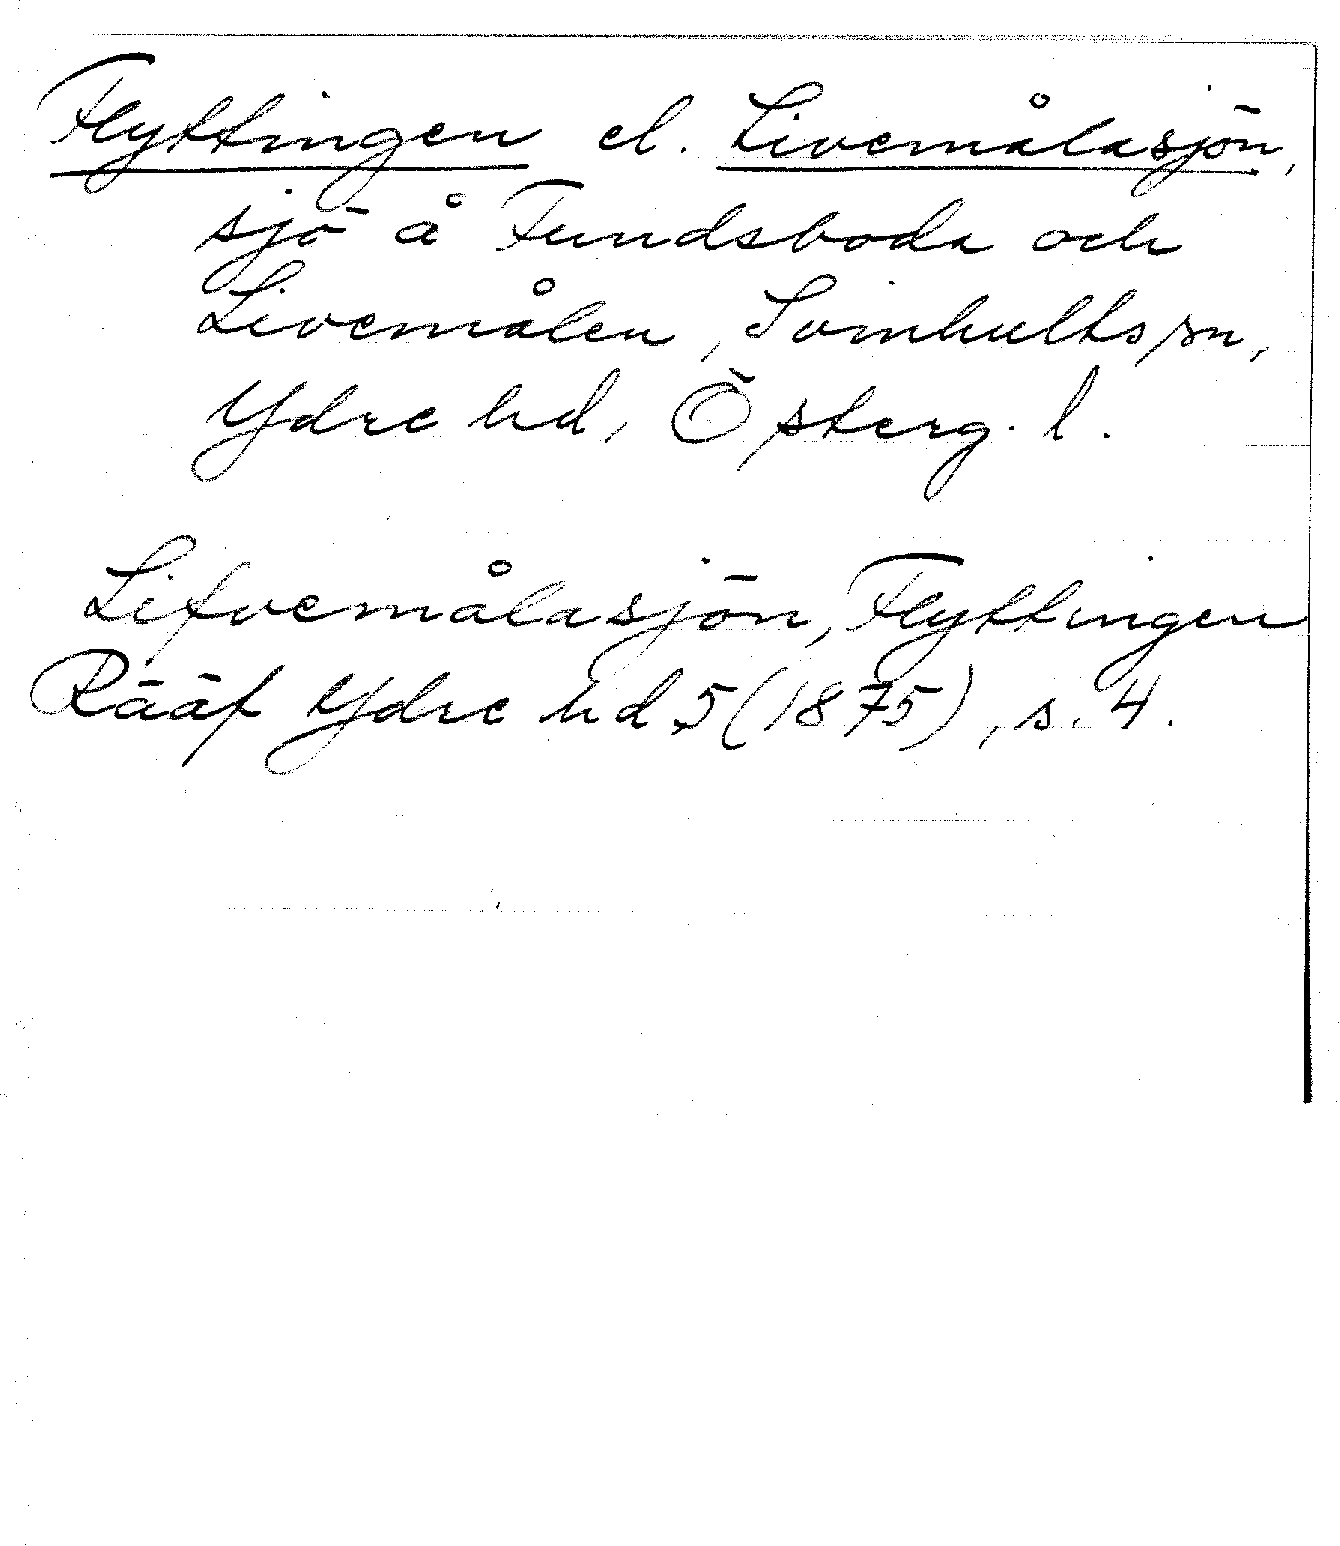 Flyttingen el. Livemålasjön,
sjö å Fundsboda och
Livemålen, Svinhults sn,
Ydre hd, Österg. l.
Lifvemålasjön, Flyttingen
Rääf Ydre hd 5 (1875), s. 4.